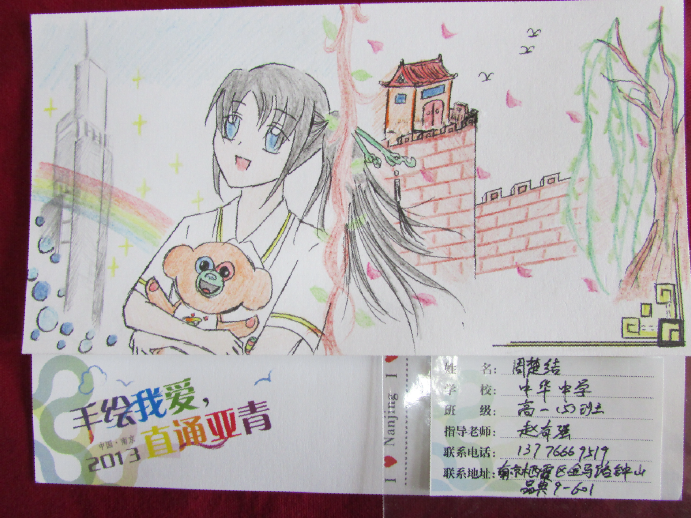 手绘我爱，
直通亚青
中国·南京
2013
I ❤ Nanjing I ❤
姓 名：周楚结
学 校：中华中学
班 级：高一(4)班
指导老师：赵奇强
联系电话：13776669519
联系地址：南京栖霞区迈马路钟山
品典9-601